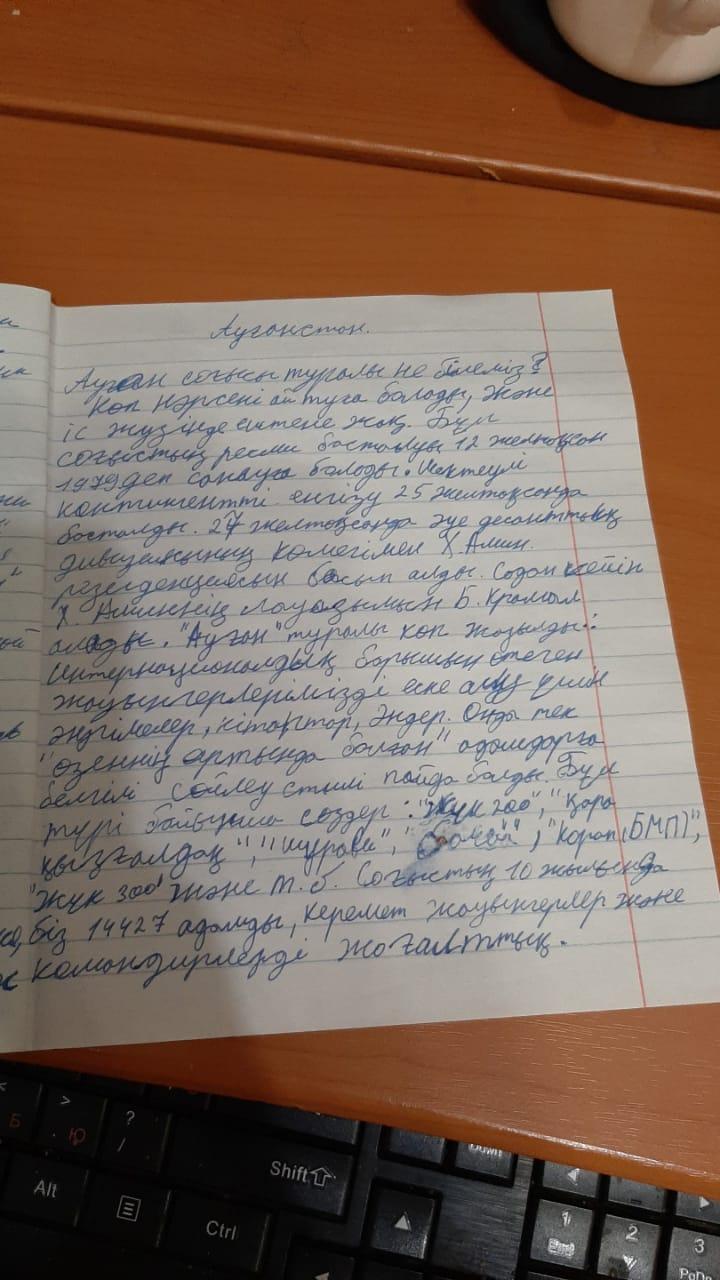 Ауғанстон.
Ауған соғысы туралы не білеміз?
Көп нәрсені айтуға болады, және
іс жүзінде ештеңе жоқ. Бұл
соғыстың ресми басталуы 12 желтоқсан
1979 ден санауға болады. Шектеулі
контингентті енгізу 25 желтоқсанда
басталды. 27 желтоқсанда әуе десанттық
дивизиясының көмегімен Х.Амин.
резиденциясын басып алды. Содан кейін
Х. Аминнің лауазымын Б. Кромал
алады. "Ауған" туралы көп жазылды:
Интернационалдық борышын өтеген
жауынгерлерімізді еске алу үшін
әңгімелер, кітаптар, әндер. Онда тек
"өзеннің артында болған" адамдарға
белгілі сөйлеу стилі пайда болды. Бұл
түрі бойынша сөздер: "Жүк 200", "қара
қызғалдақ", "шурави", "Қорап (БМП)",
"Жүк 300" және т. б. Соғыстың 10 жылында
біз 14427 адамды, керемет жауынгерлер және
командирлерді жоғалттық.
Б
Ю
?
/
Shift
Alt
Ctrl
1
End
2
3
PgDn